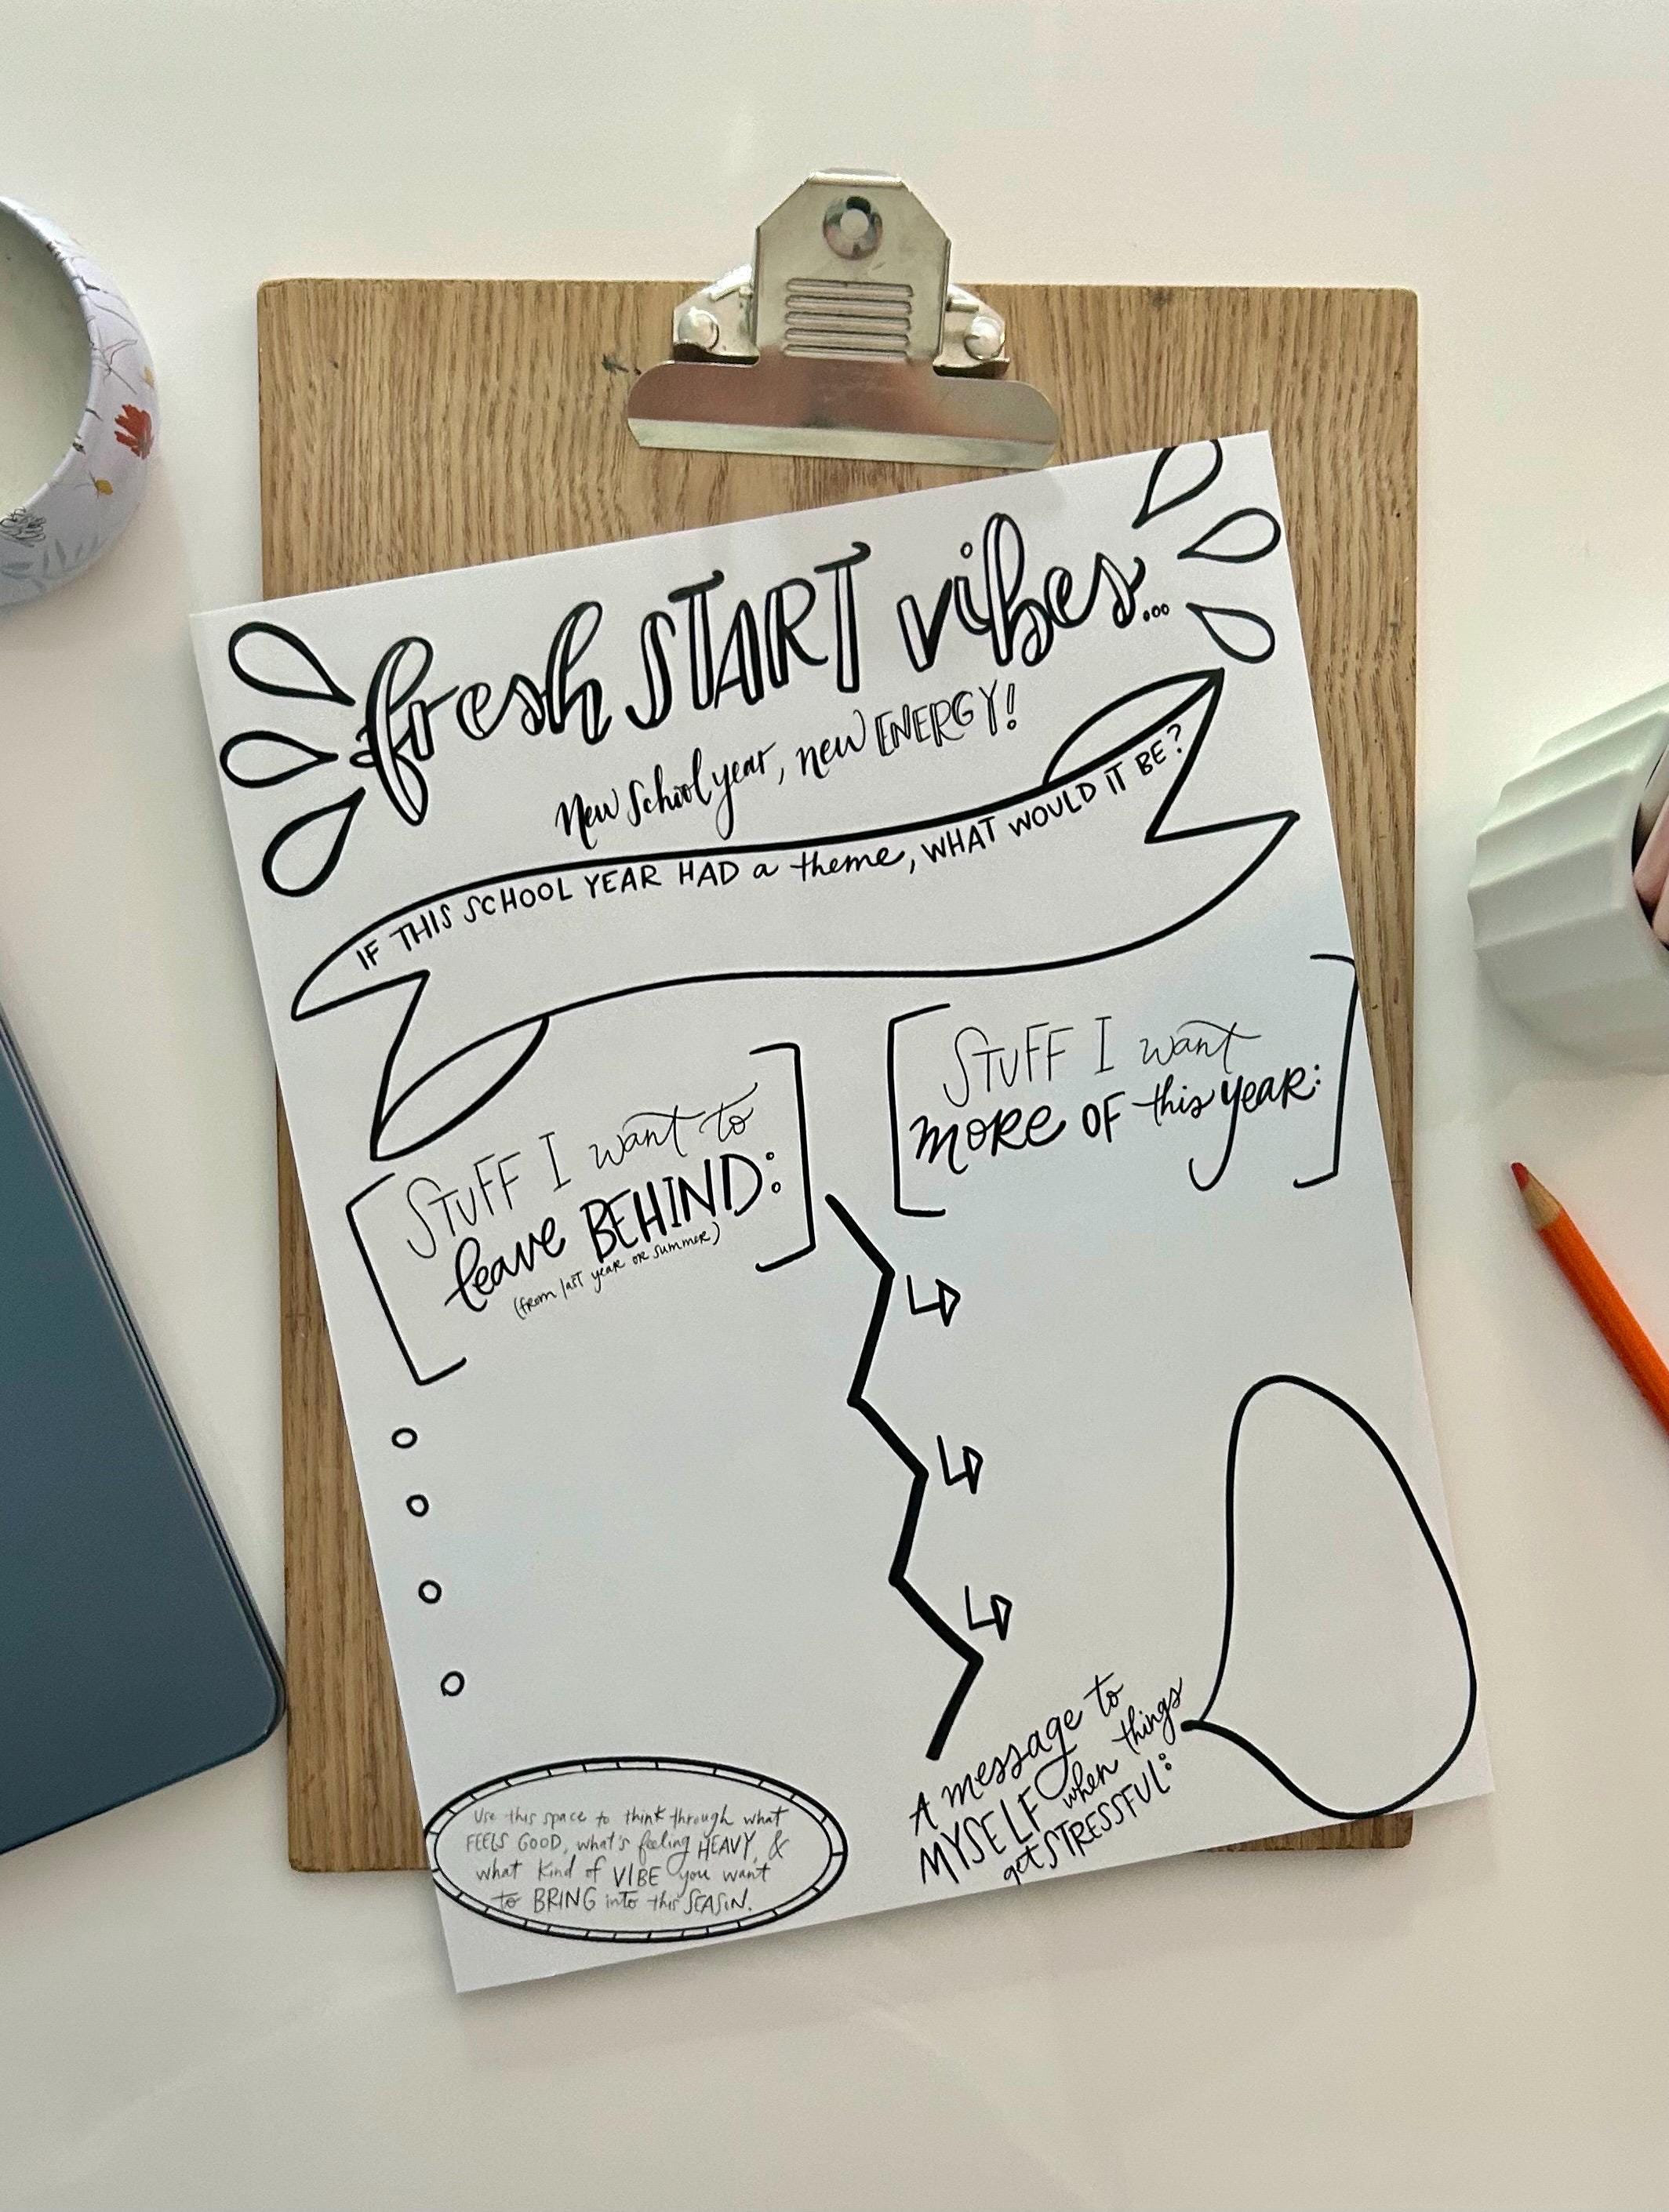 fresh START vibes...
New School year, new ENERGY!
IF THIS SCHOOL YEAR HAD a theme, WHAT WOULD IT BE?
STUFF I want to
leave BEHIND:
(from last year or summer)
STUFF I want
more of this year:
A message to
MYSELF when things
get STRESSFUL:
Use this space to think through what
FEELS GOOD, what's feeling HEAVY, &
what kind of VIBE you want
to BRING into this SEASON.